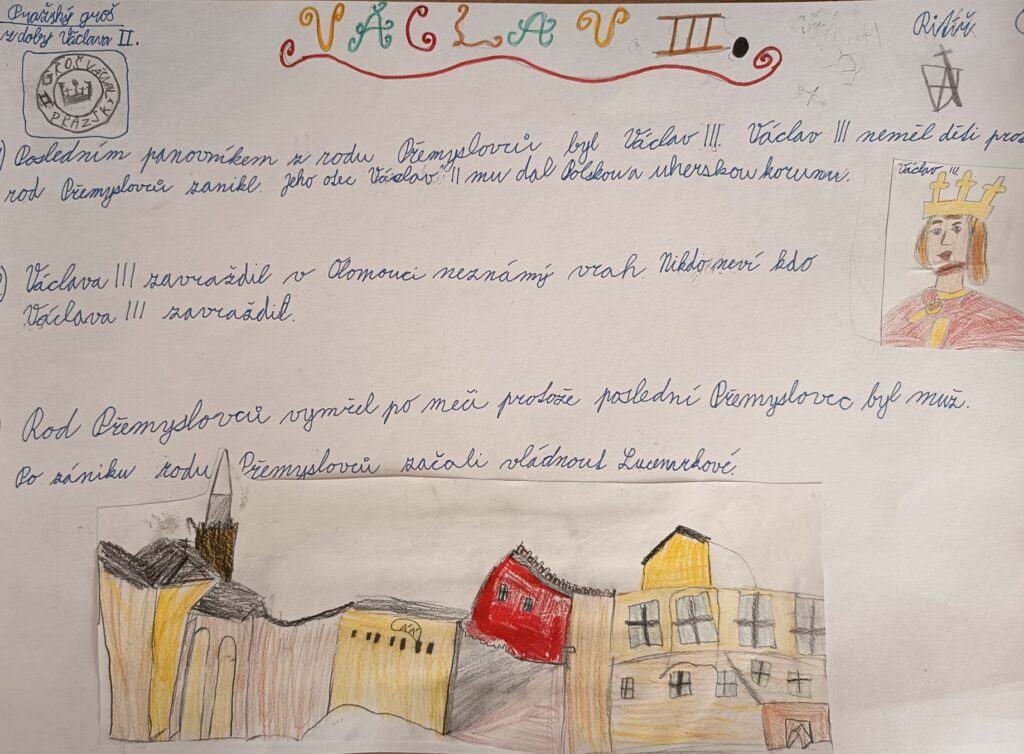 Pražský groš
z doby Václava II.
VÁCLAV III.
Rytíř
GROŠ VÁCLAV II PRAŽSK
Posledním panovníkem z rodu Přemyslovců byl Václav III. Václav III neměl děti pro
rod Přemyslovců zanikl. Jeho otec Václav II mu dal Polskou a uherskou korunu.
Václav III.
Václava III zavraždil v Olomouci neznámý vrah. Nikdo neví kdo
Václava III zavraždil.
Rod Přemyslovců vymřel po meči protože poslední Přemyslovec byl muž.
Po zániku rodu Přemyslovců začali vládnout